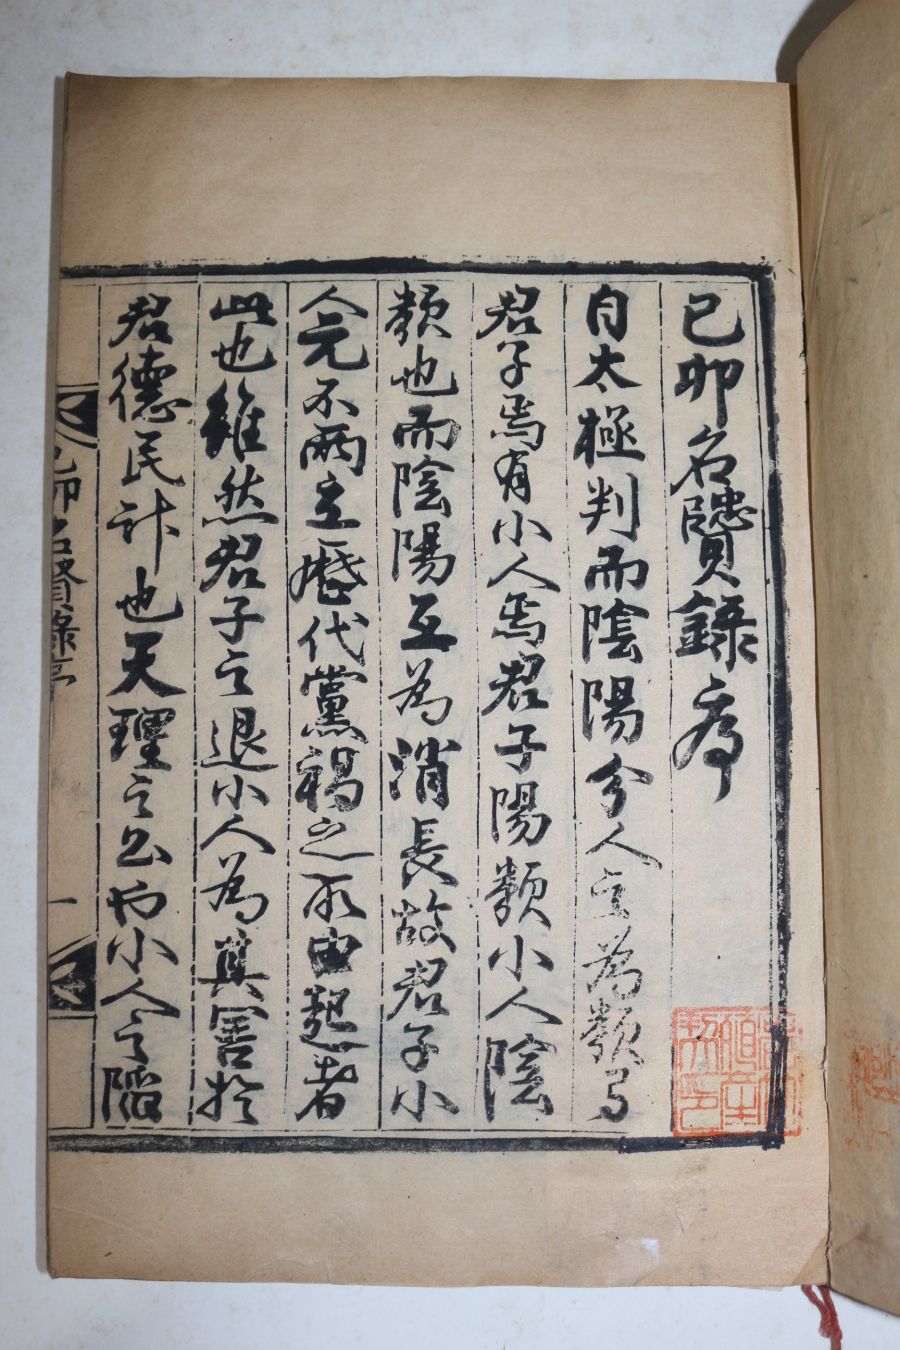 己卯名賢錄序
自太極判而陰陽分人之為類有
君子焉有小人焉君子陽類小人陰
類也而陰陽互為消長故君子小
人元不兩立歷代黨禍之所由起者
此也雖然君子之退小人為真害於
君德民計也天理之公而小人之陷
己卯名賢錄序
一